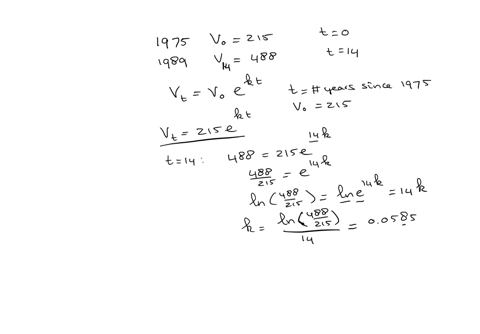 1975 V₀ = 215 t = 0
1989 V₁₄ = 488 t = 14
Vₜ = V₀ e^kt t = # years since 1975
V₀ = 215
Vₜ = 215 e^kt
t = 14 : 488 = 215 e^14k
488/215 = e^14k
ln(488/215) = ln e^14k = 14k
k = ln(488/215)/14 = 0.0585